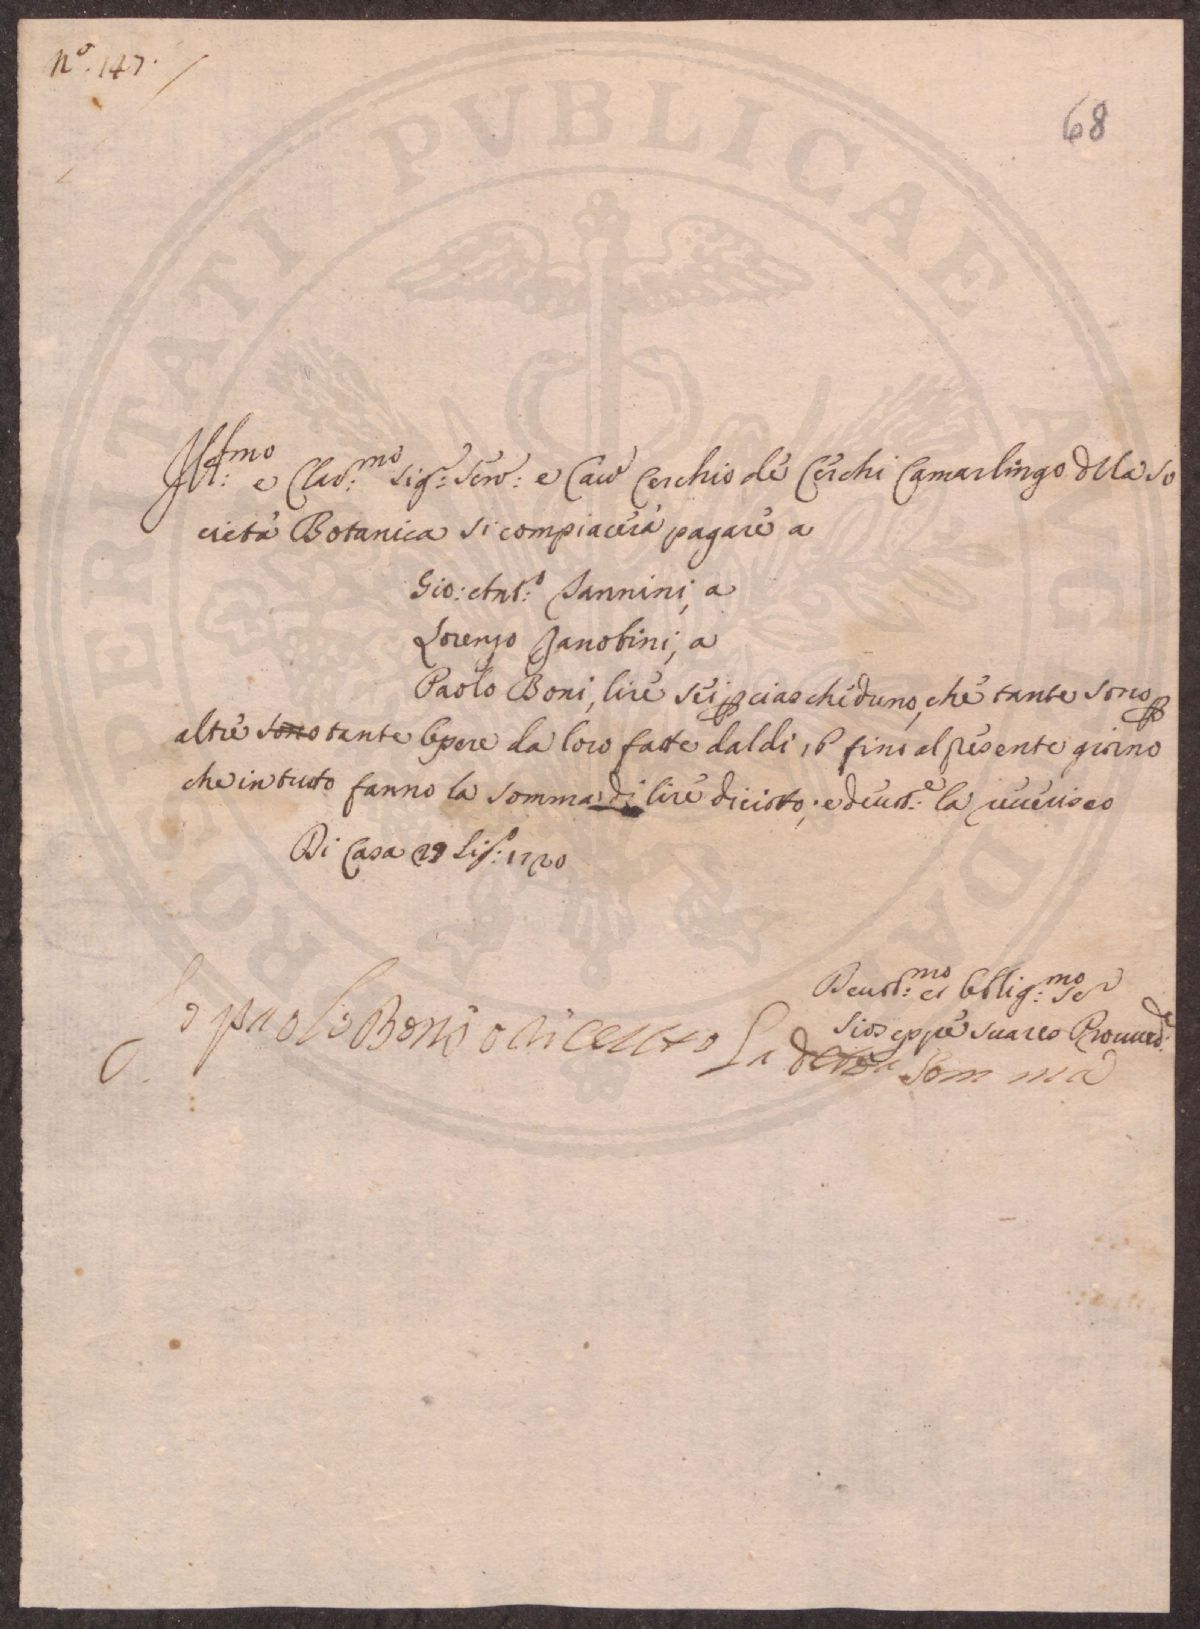 N.º 147.
68
Ill.mo e Clar.mo Sig.r Sen.r e Cav.r Cerchio de Cerchi Camarlingo della So
cietà Botanica si compiacerà pagare a
Gio: Ant.o Nannini, a
Lorenzo Zanobini, a
Paolo Boni, lire sei p ciascheduno, che tante sono p
altre sono tante opere da loro fatte dal dì 16 fino al presente giorno
che in tutto fanno la somma di lire diciotto; e deuot.e la riuerisco
Di Casa 29 1720
Deuot.mo et Obblig.mo Se.r
Gioseppe Suares Proued.re
Io paolo Boni o riceuto La detta Somma